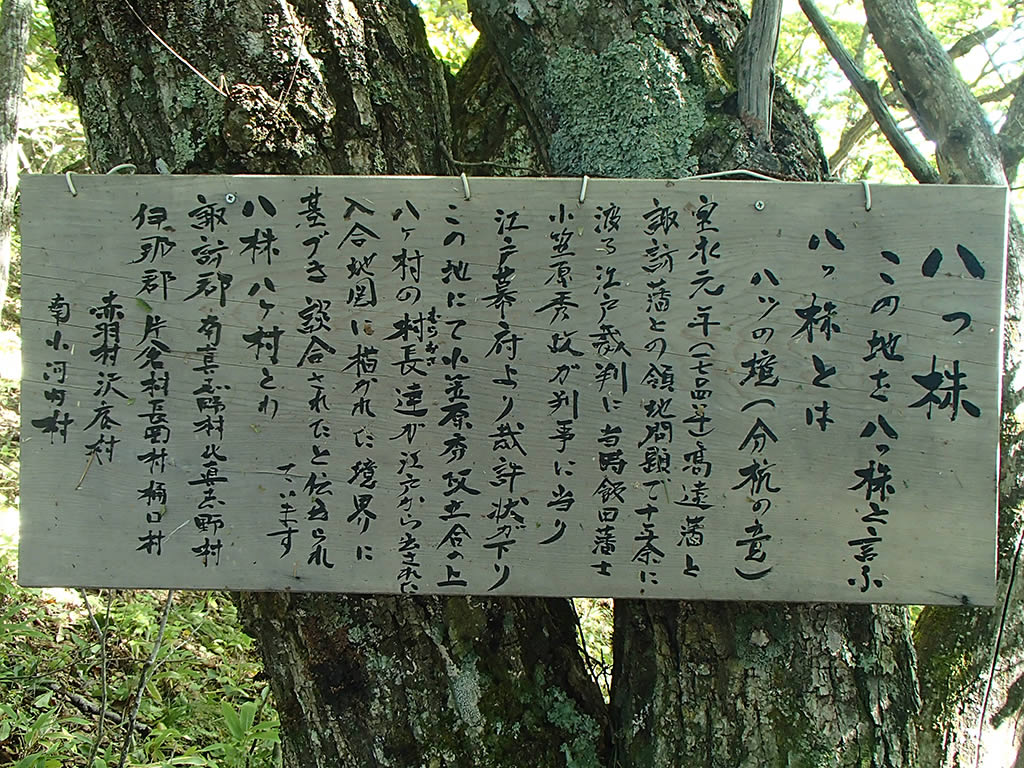 八っ株
この地を八っ株と言ふ
八ッ株とは
ハツの境(分杭の意)
宝永元年(一七〇四年)高遠藩と
諏訪藩との領地問題で十五年余に
渡る江戸裁判に当時飯田藩士
小笠原秀政が判事に当り
江戸幕府より裁許状が下り
この地にて小笠原秀政立合の上
八ヶ村の村長達が江戸から出された
むらおさ
入合地図に描かれた境界に
基づき談合されたと伝えられ
ています
八株八ヶ村とわ
諏訪郡 南真志野村北真志野村
伊那郡 片倉村長岡村樋口村
赤羽村沢底村
南小河内村